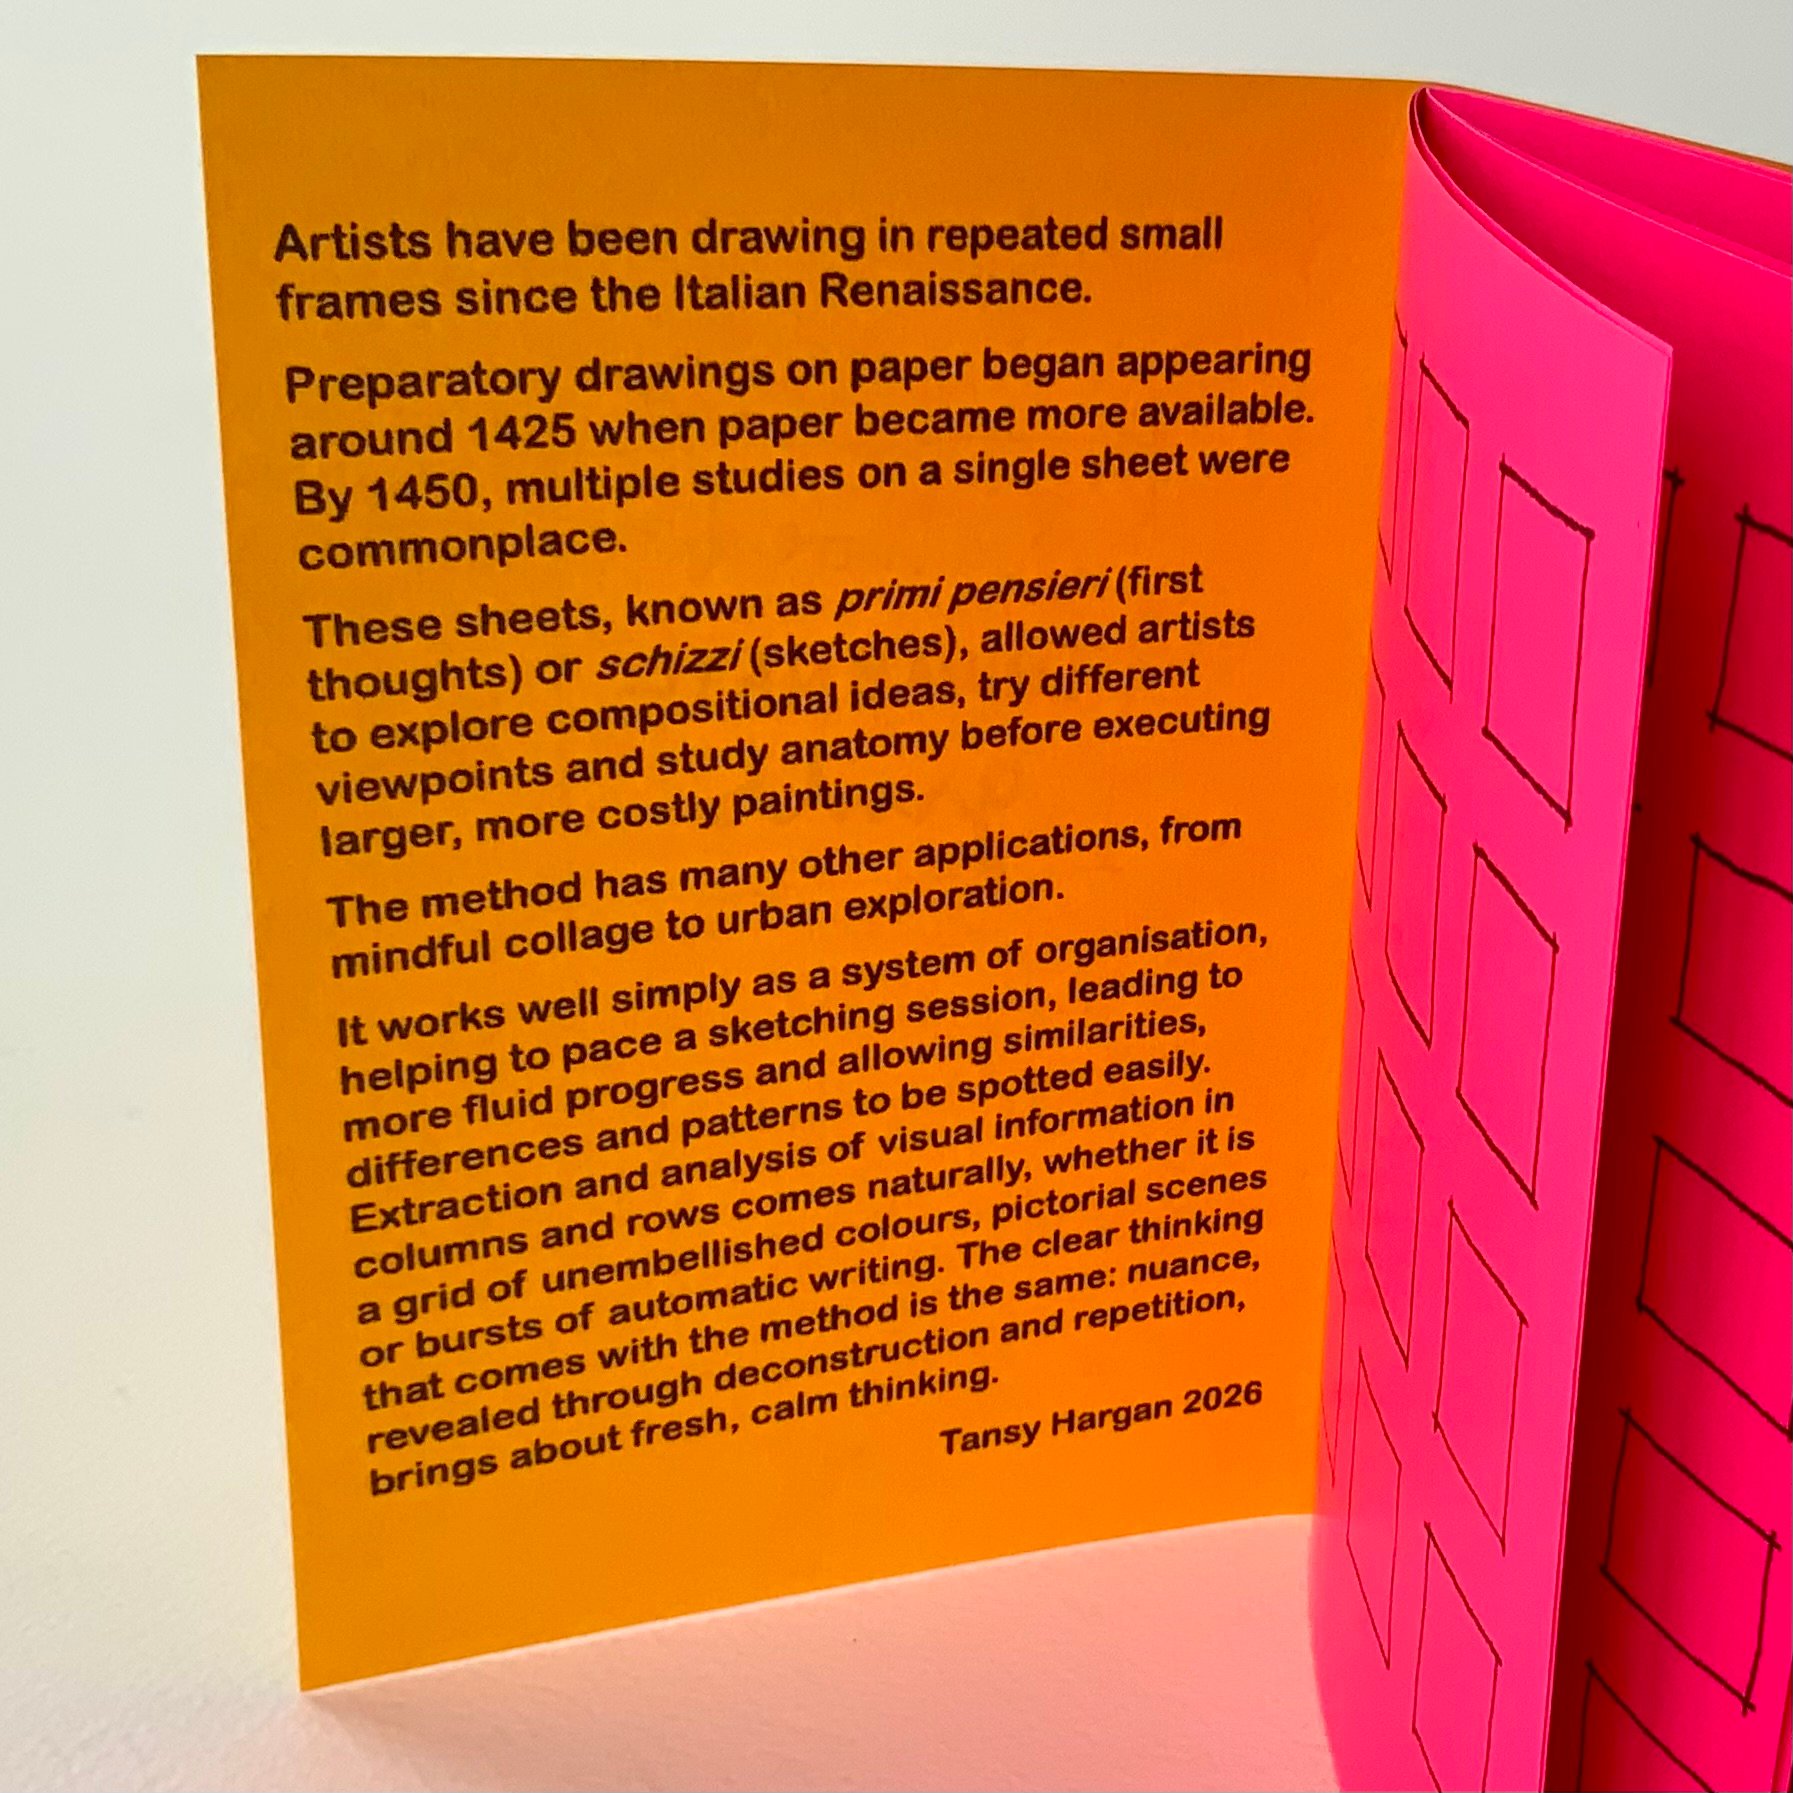 Artists have been drawing in repeated small
frames since the Italian Renaissance.
Preparatory drawings on paper began appearing
around 1425 when paper became more available.
By 1450, multiple studies on a single sheet were
commonplace.
These sheets, known as primi pensieri (first
thoughts) or schizzi (sketches), allowed artists
to explore compositional ideas, try different
viewpoints and study anatomy before executing
larger, more costly paintings.
The method has many other applications, from
mindful collage to urban exploration.
It works well simply as a system of organisation,
helping to pace a sketching session, leading to
more fluid progress and allowing similarities,
differences and patterns to be spotted easily.
Extraction and analysis of visual information in
columns and rows comes naturally, whether it is
a grid of unembellished colours, pictorial scenes
or bursts of automatic writing. The clear thinking
that comes with the method is the same: nuance,
revealed through deconstruction and repetition,
brings about fresh, calm thinking.
Tansy Hargan 2026